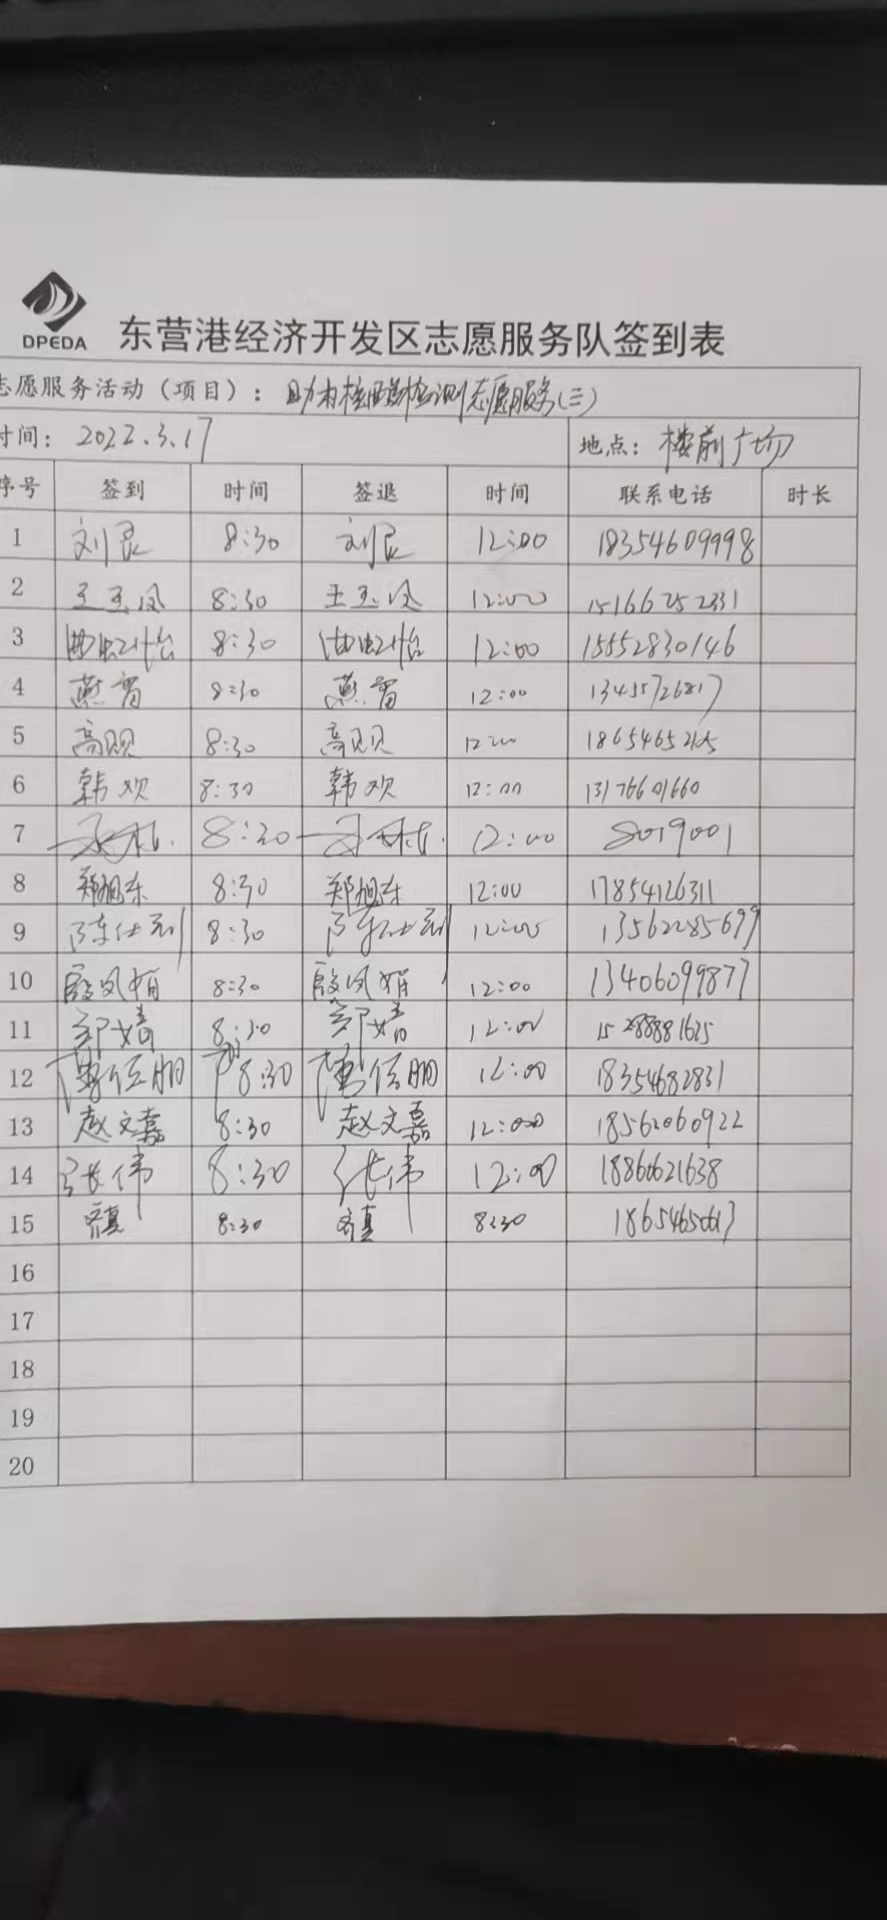 DPEDA
东营港经济开发区志愿服务队签到表
志愿服务活动（项目）：助力核酸检测志愿服务(三)
时间：2022.3.17 地点：楼前广场
序号 签到 时间 签退 时间 联系电话 时长
1 刘良 8:30 刘良 12:00 18354609998
2 王玉凤 8:30 王玉凤 12:00 15166252331
3 8:30 12:00 15552830146
4 燕 8:30 燕 12:00
5 高 8:30 高 12:00
6 韩欢 8:30 韩欢 12:00 13176601660
7 8:30 12:00 8019001
8 郑旭东 8:30 郑旭东 12:00 17854126311
9 陈仕 8:30 陈仕 12:00 13562285699
10 殷凤娟 8:30 殷凤娟 12:00 13406099877
11 邹婧 8:30 邹婧 12:00
12 8:30 12:00 18354682831
13 赵文嘉 8:30 赵文嘉 12:00 18562060922
14 张伟 8:30 张伟 12:00 18860621638
15 8:30 8:30
16
17
18
19
20